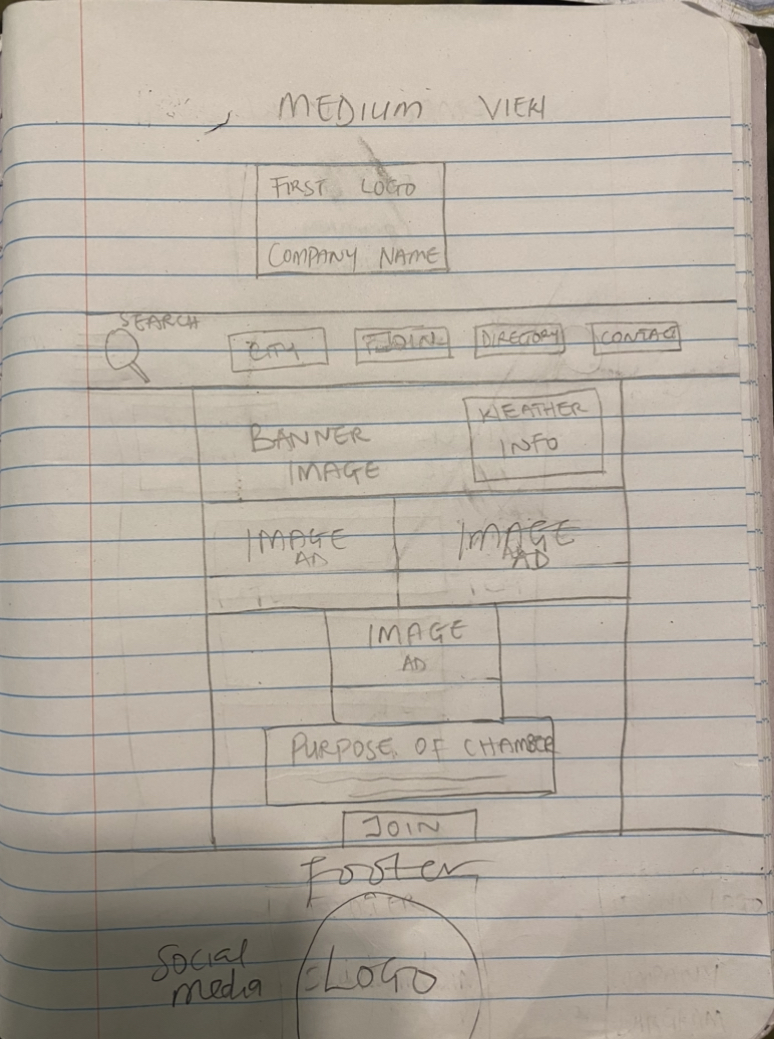 MEDIUM VIEW
FIRST LOGO
COMPANY NAME
SEARCH
CITY JOIN DIRECTORY CONTAC
WEATHER
INFO
BANNER
IMAGE
IMAGE
AD
IMAGE
AD
IMAGE
AD
PURPOSE OF CHAMBER
JOIN
Footer
Social
media
LOGO